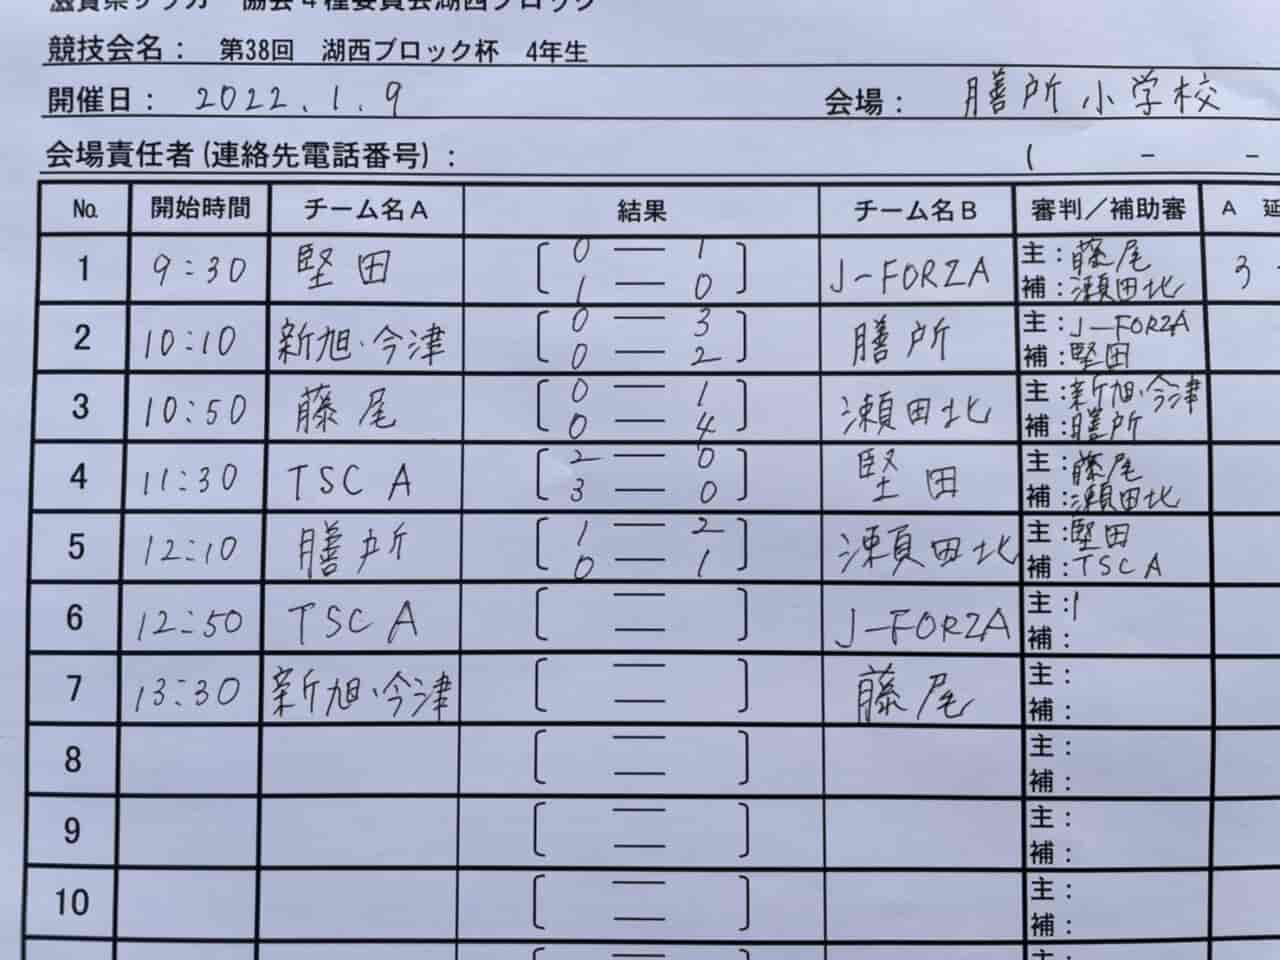 滋賀県サッカー協会4種委員会湖西ブロック
競技会名： 第38回 湖西ブロック杯 4年生
開催日： 2022.1.9 会場： 膳所小学校
会場責任者(連絡先電話番号)： ( - -
№ 開始時間 チーム名A 結果 チーム名B 審判／補助審 A 延
1 9:30 堅田 0 — 1 J-FORZA 主：藤尾 3
1 — 0 補：瀬田北
2 10:10 新旭・今津 0 — 3 膳所 主：J-FORZA
0 — 2 補：堅田
3 10:50 藤尾 0 — 1 瀬田北 主：新旭・今津
0 — 4 補：膳所
4 11:30 TSC A 2 — 0 堅田 主：藤尾
3 — 0 補：瀬田北
5 12:10 膳所 1 — 2 瀬田北 主：堅田
0 — 1 補：TSC A
6 12:50 TSC A — J-FORZA 主：
— 補：
7 13:30 新旭・今津 — 藤尾 主：
— 補：
8 — 主：
— 補：
9 — 主：
— 補：
10 — 主：
— 補：
— 主：